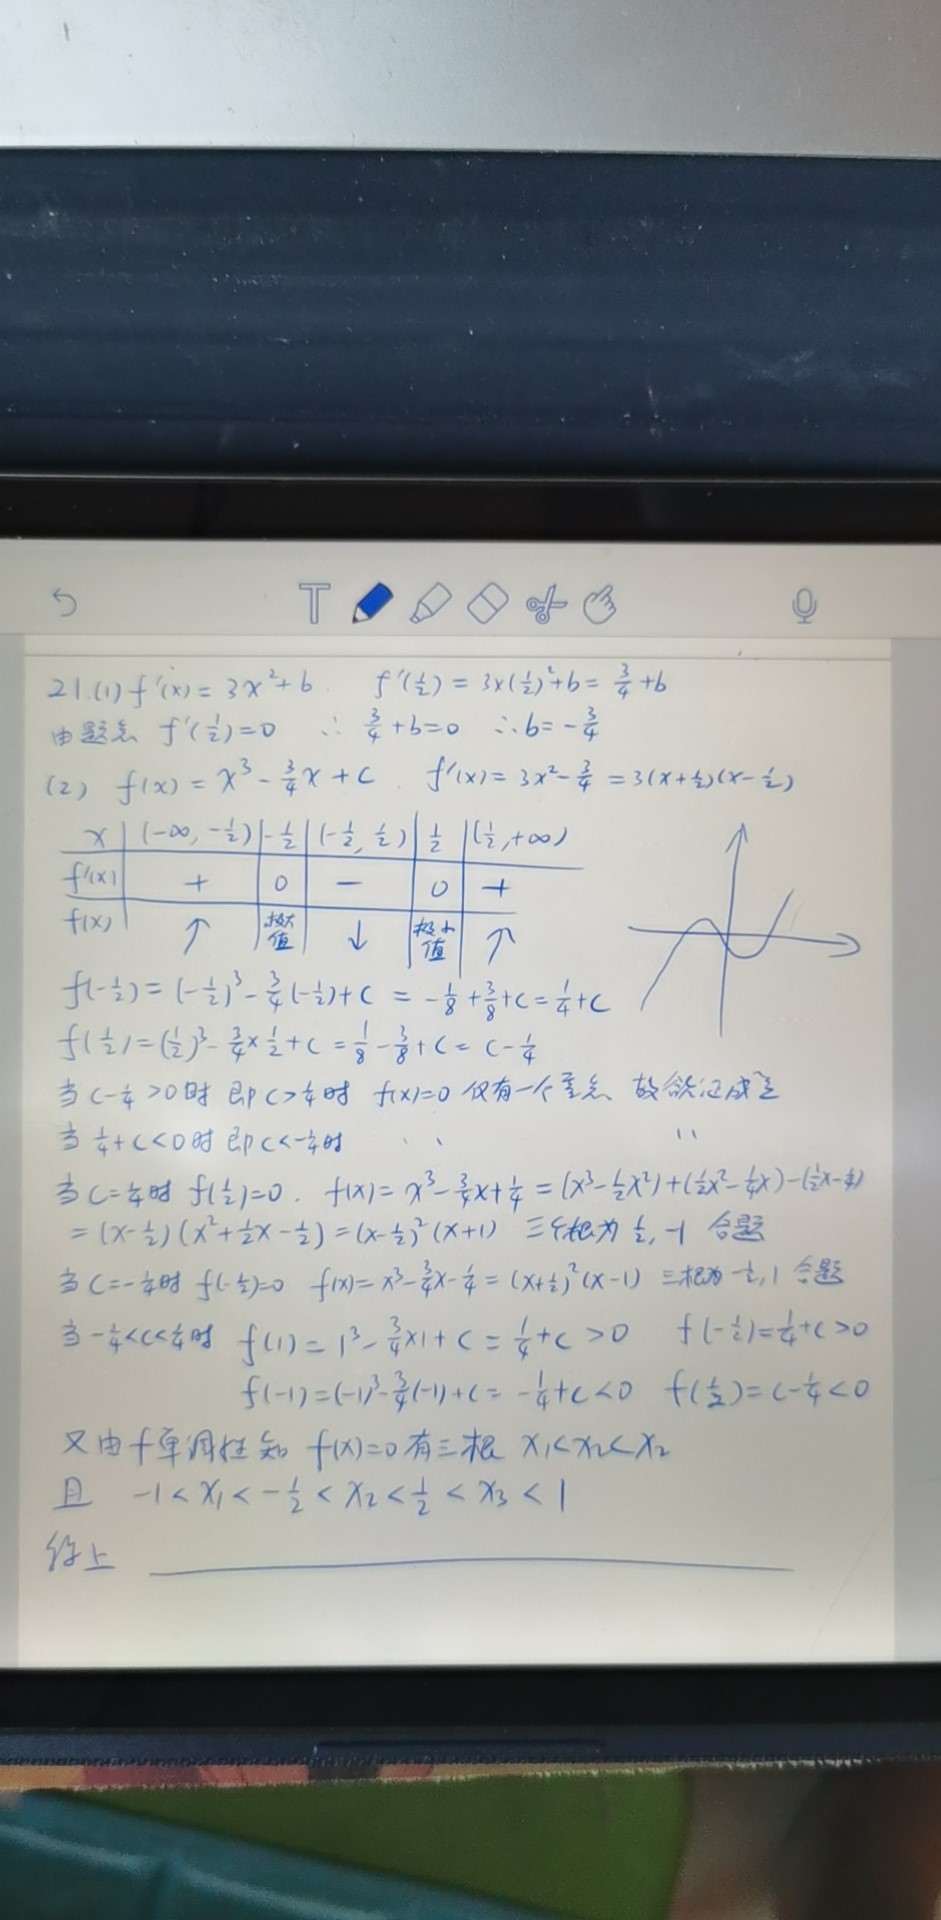 21.(1) f'(x) = 3x²+b. f'(1/2) = 3×(1/2)²+b = 3/4+b
由题意 f'(1/2)=0 ∴ 3/4+b=0 ∴b=-3/4
(2) f(x) = x³-3/4x+c. f'(x) = 3x²-3/4 = 3(x+1/2)(x-1/2)
x (-∞, -1/2) -1/2 (-1/2, 1/2) 1/2 (1/2, +∞)
f'(x) + 0 — 0 +
f(x) ↑ 极大值 ↓ 极小值 ↑
f(-1/2) = (-1/2)³-3/4(-1/2)+c = -1/8+3/8+c = 1/4+c
f(1/2) = (1/2)³-3/4×1/2+c = 1/8-3/8+c = c-1/4
当 c-1/4>0时 即c>1/4时 f(x)=0 仅有一个零点 故欲证成立
当 1/4+c<0时 即c<-1/4时 〃 〃
当c=1/4时 f(1/2)=0. f(x) = x³-3/4x+1/4 = (x³-1/2x²)+(1/2x²-1/4x)-(1/2x-1/4)
= (x-1/2)(x²+1/2x-1/2) = (x-1/2)²(x+1) 三个根为 1/2, -1 合题
当c=-1/4时 f(-1/2)=0 f(x) = x³-3/4x-1/4 = (x+1/2)²(x-1) 三根为 -1/2, 1 合题
当-1/4<c<1/4时 f(1) = 1³-3/4×1+c = 1/4+c>0 f(-1/2)=1/4+c>0
f(-1) = (-1)³-3/4(-1)+c = -1/4+c<0 f(1/2)=c-1/4<0
又由f单调性知 f(x)=0有三根 x₁<x₂<x₂
且 -1<x₁<-1/2<x₂<1/2<x₃<1
综上